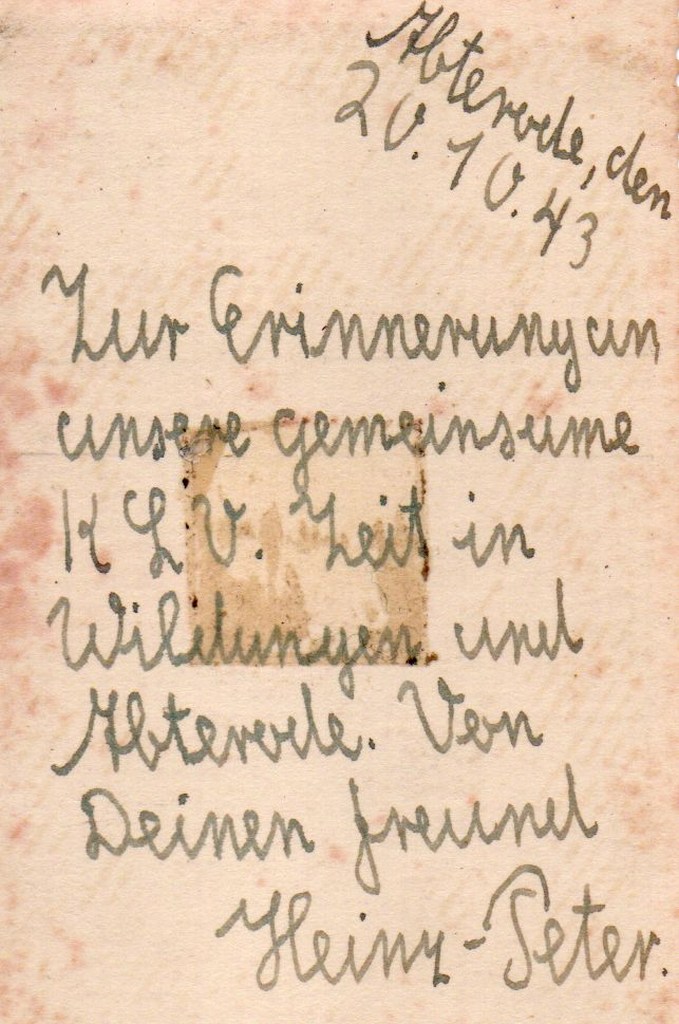 Abterode, den
20.10.43
Zur Erinnerung an
unsere gemeinsame
K L V. Zeit in
Wildungen und
Abterode. Von
Deinen Freund
Heinz-Peter.